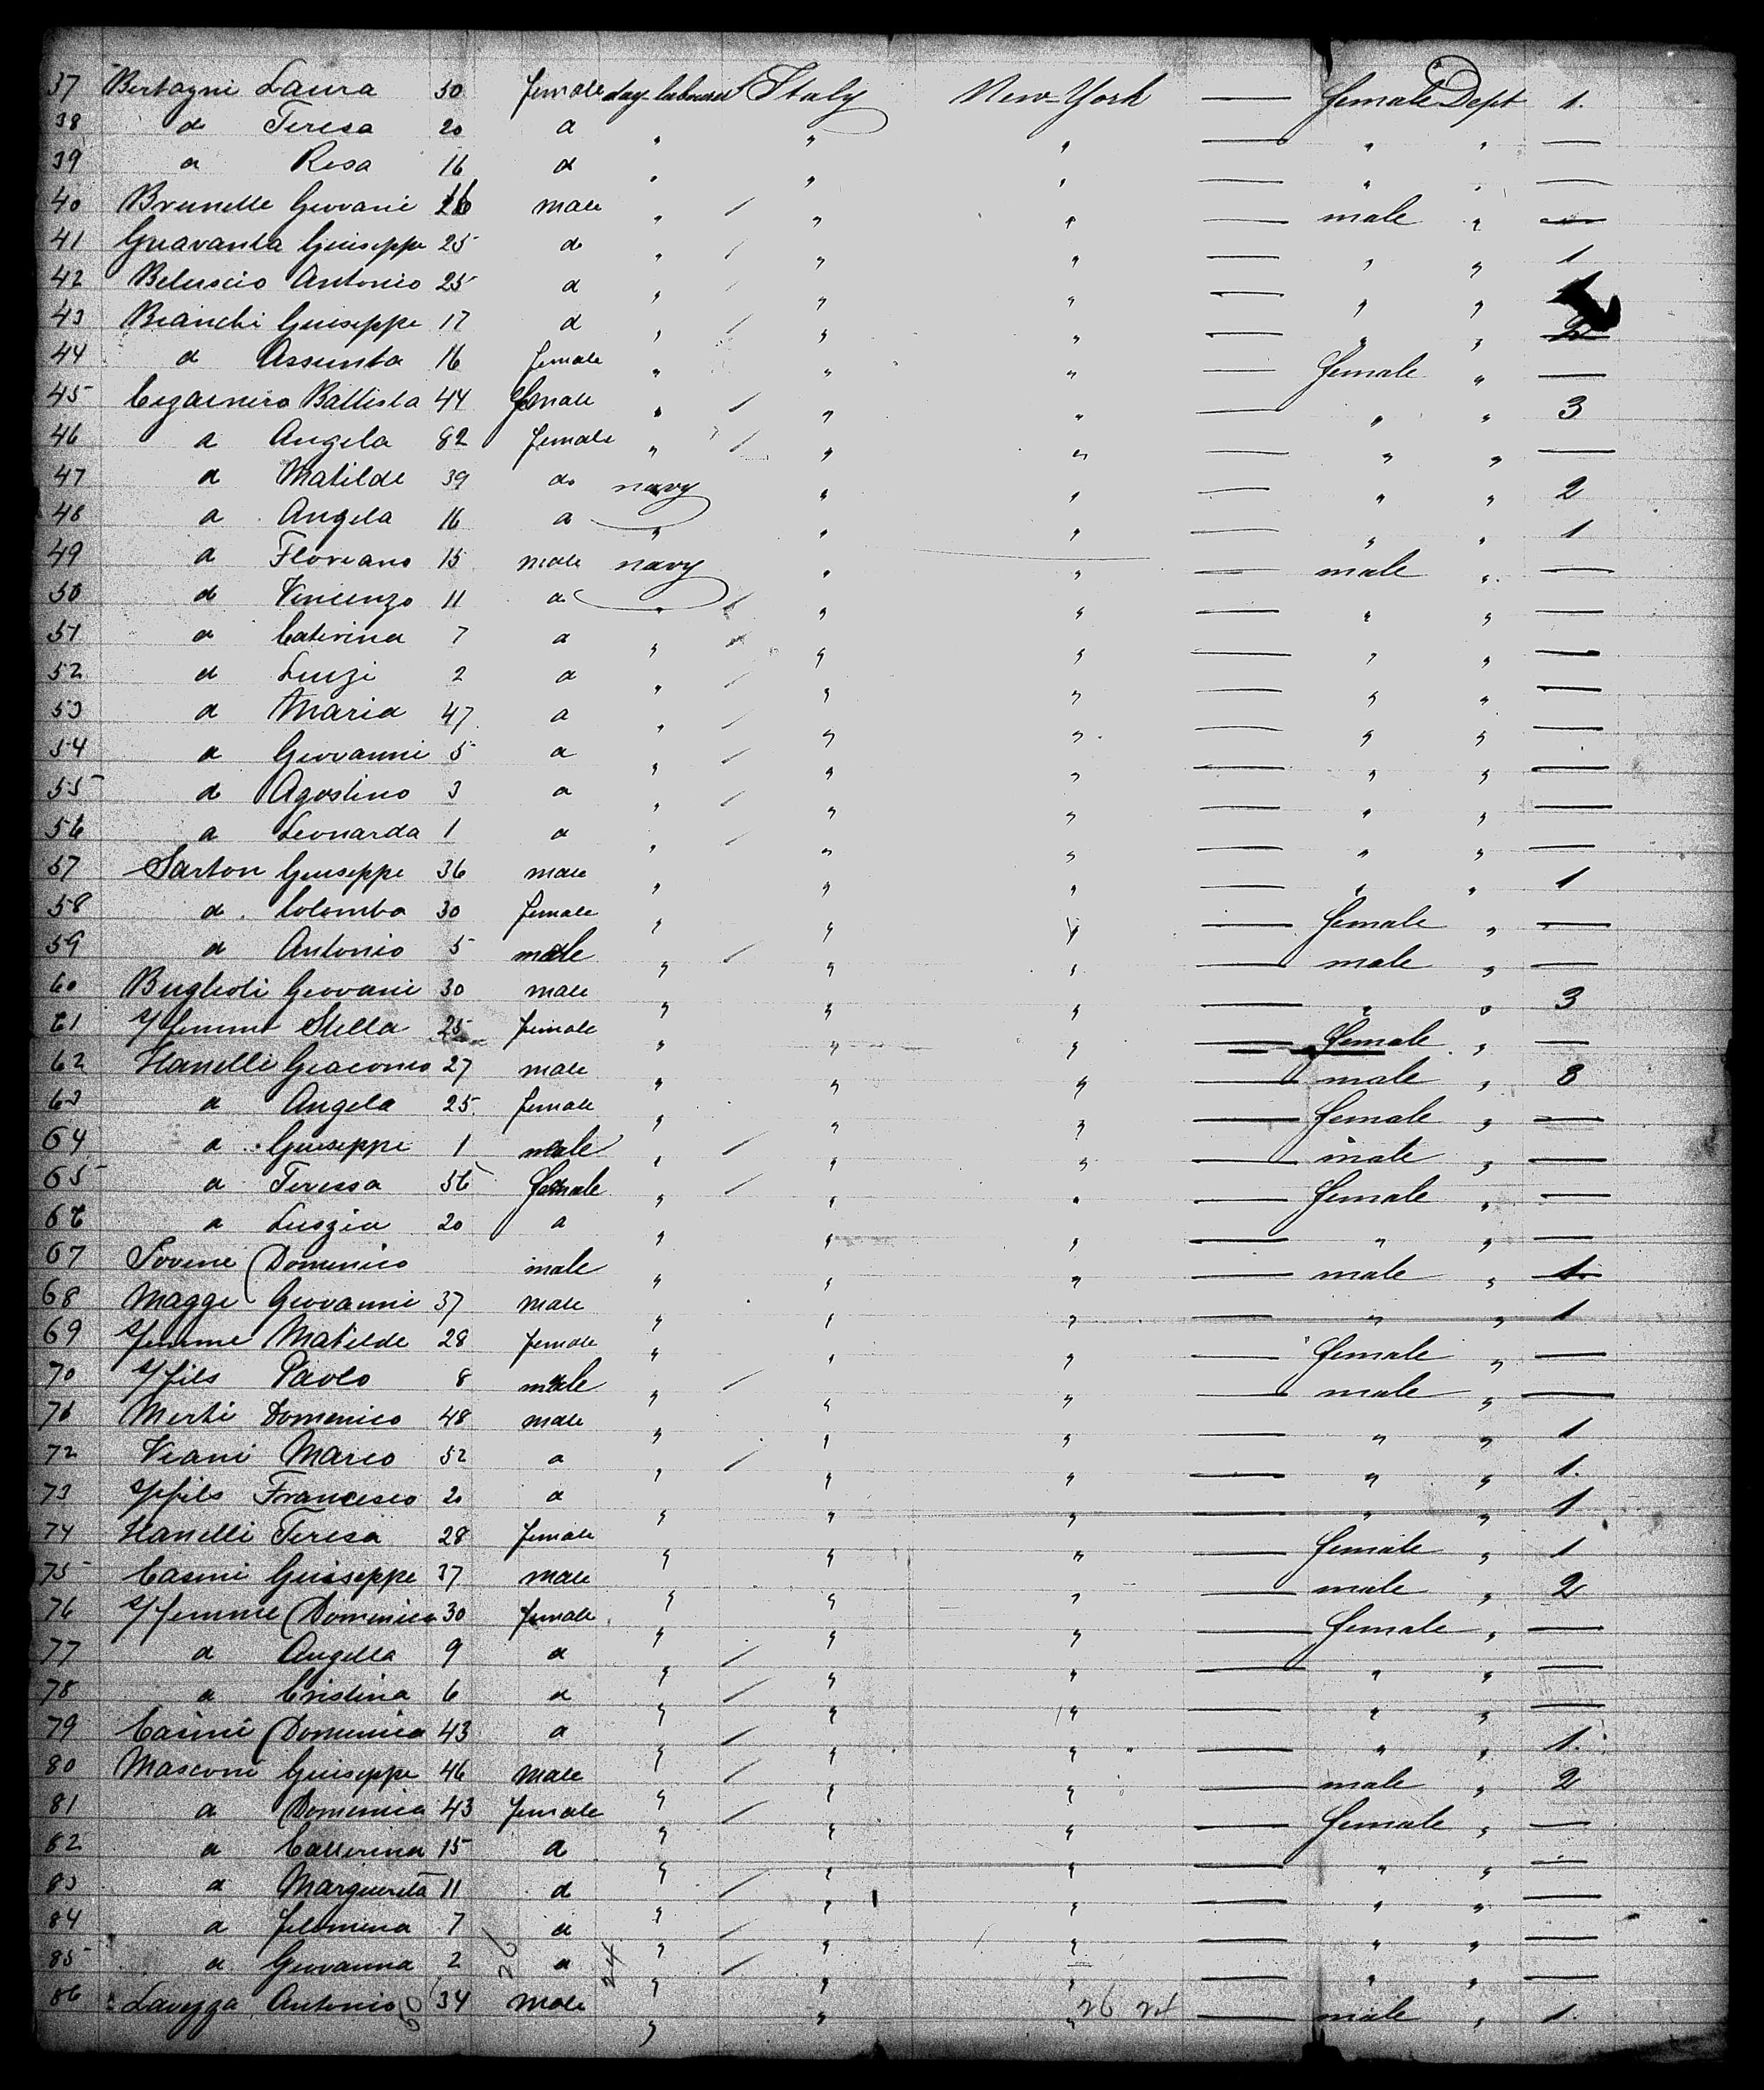 37 Bertagni Laura 50 female day labourer Italy New-York — female Dept 1.
38 do Teresa 20 d " " " — " " —
39 d Rosa 16 d " " " — " " —
40 Brunelle Giovanie 26 male " / " " — male " —
41 Guavanta Guiseppe 25 do " / " " — " " 1
42 Beluscio Antonio 25 d " / " " — " " 1
43 Bianchi Guiseppe 17 d " / " " — " " 2
44 d Assunta 16 female " " " — female " —
45 Cigarnero Battista 44 female " / " " — " " 3
46 a Angela 82 female " / " " — " " —
47 d Matilde 39 do navy " " — " " 2
48 a Angela 16 a " " " — " " 1
49 d Floreano 15 male navy " " — male " —
50 d Vincenzo 11 a " / " " — " " —
51 a Caterina 7 a " / " " — " " —
52 d Luigi 2 a " / " " — " " —
53 d Maria 47 a " / " " — " " —
54 a Giovanni 5 a " / " " — " " —
55 d Agostino 3 a " / " " — " " —
56 a Leonarda 1 a " / " " — " " —
57 Sarton Guiseppe 36 male " " " — " " 1
58 d. Colomba 30 female " " " — female " —
59 d Antonio 5 male " / " " — male " —
60 Buglioti Giovanie 30 male " " " — " " 3
61 s/femme Stella 25 female " " " — female " —
62 Hanelli Giacomo 27 male " " " — male " 8
63 d Angela 25. female " " " — female " —
64 a Guiseppi 1 male " / " " — male " —
65 a Teressa 56 female " / " " — female " —
66 a Luigia 20 a " " " — " " —
67 Iovine Domenico male " " " — male " 1.
68 Maggi Giovanni 37 male " " " — " " 1
69 s/femme Matilde 28 female " " " — female " —
70 s/fils Paolo 8 male " / " " — male " —
71 Merti Domenico 48 male " " " — " " 1
72 Viani Marco 52 a " / " " — " " 1.
73 s/fils Francesco 20 d " " " — " " 1
74 Hanelli Teresa 28 female " " " — female " 1
75 Casini Guiseppe 37 male " " " — male " 2
76 s/femme Domenica 30 female " " " — female " —
77 d Angella 9 d " / " " — " " —
78 a Cristina 6 d " / " " — " " —
79 Casini Domenica 43 a " / " " — " " 1.
80 Masconi Guiseppe 46 male " / " " — male " 2
81 a Domenica 43 female " / " " — female " —
82 a Catterina 15 d " " " — " " —
83 d Marguereta 11 d " / " " — " " —
84 a filomena 7 d " / " " — " " —
85 a Giovanna 2 a " / " " — " " —
86 Lavezza Antonio 34 male " " " — male " 1.
60 26 24 26 24